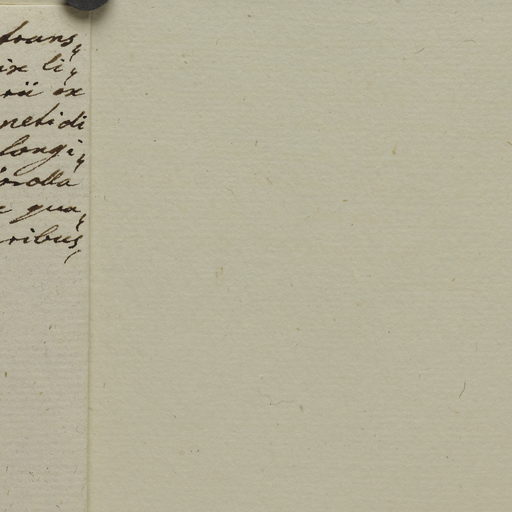 trans„
ix li„
rii ex
neti di
longi„
orolla
e qua„
ribus„